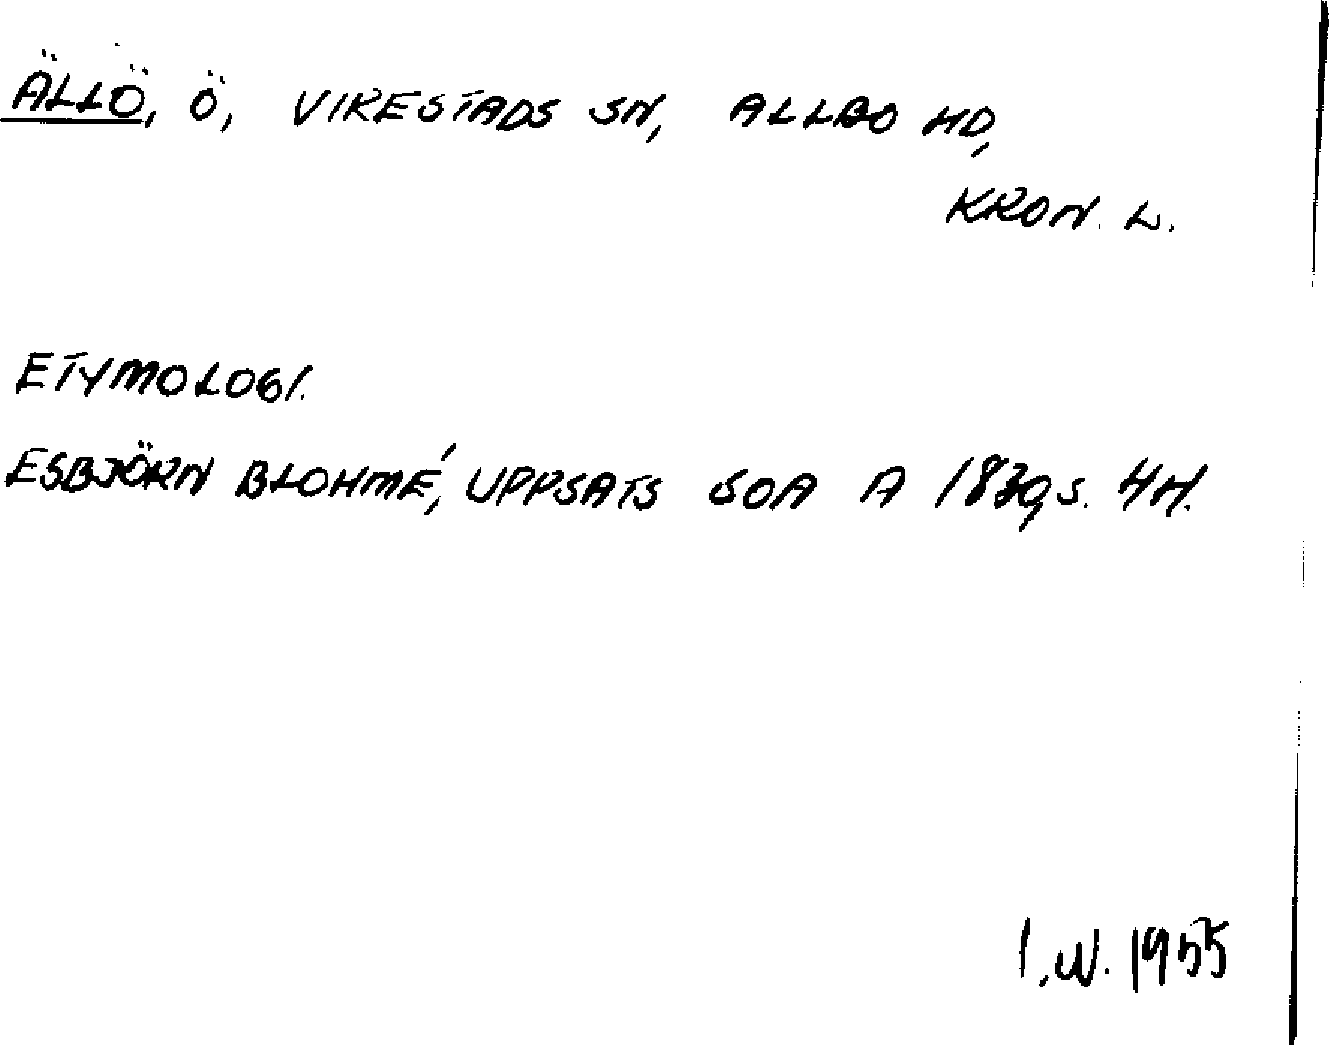 ÄLLÖ, Ö, VIRESTADS SN, ALLBO HD,
KRON. L.
ETYMOLOGI.
ESBJÖRN BLOHMÉ, UPPSATS SOA A 1839 S. 4 H.
I.W. 1955